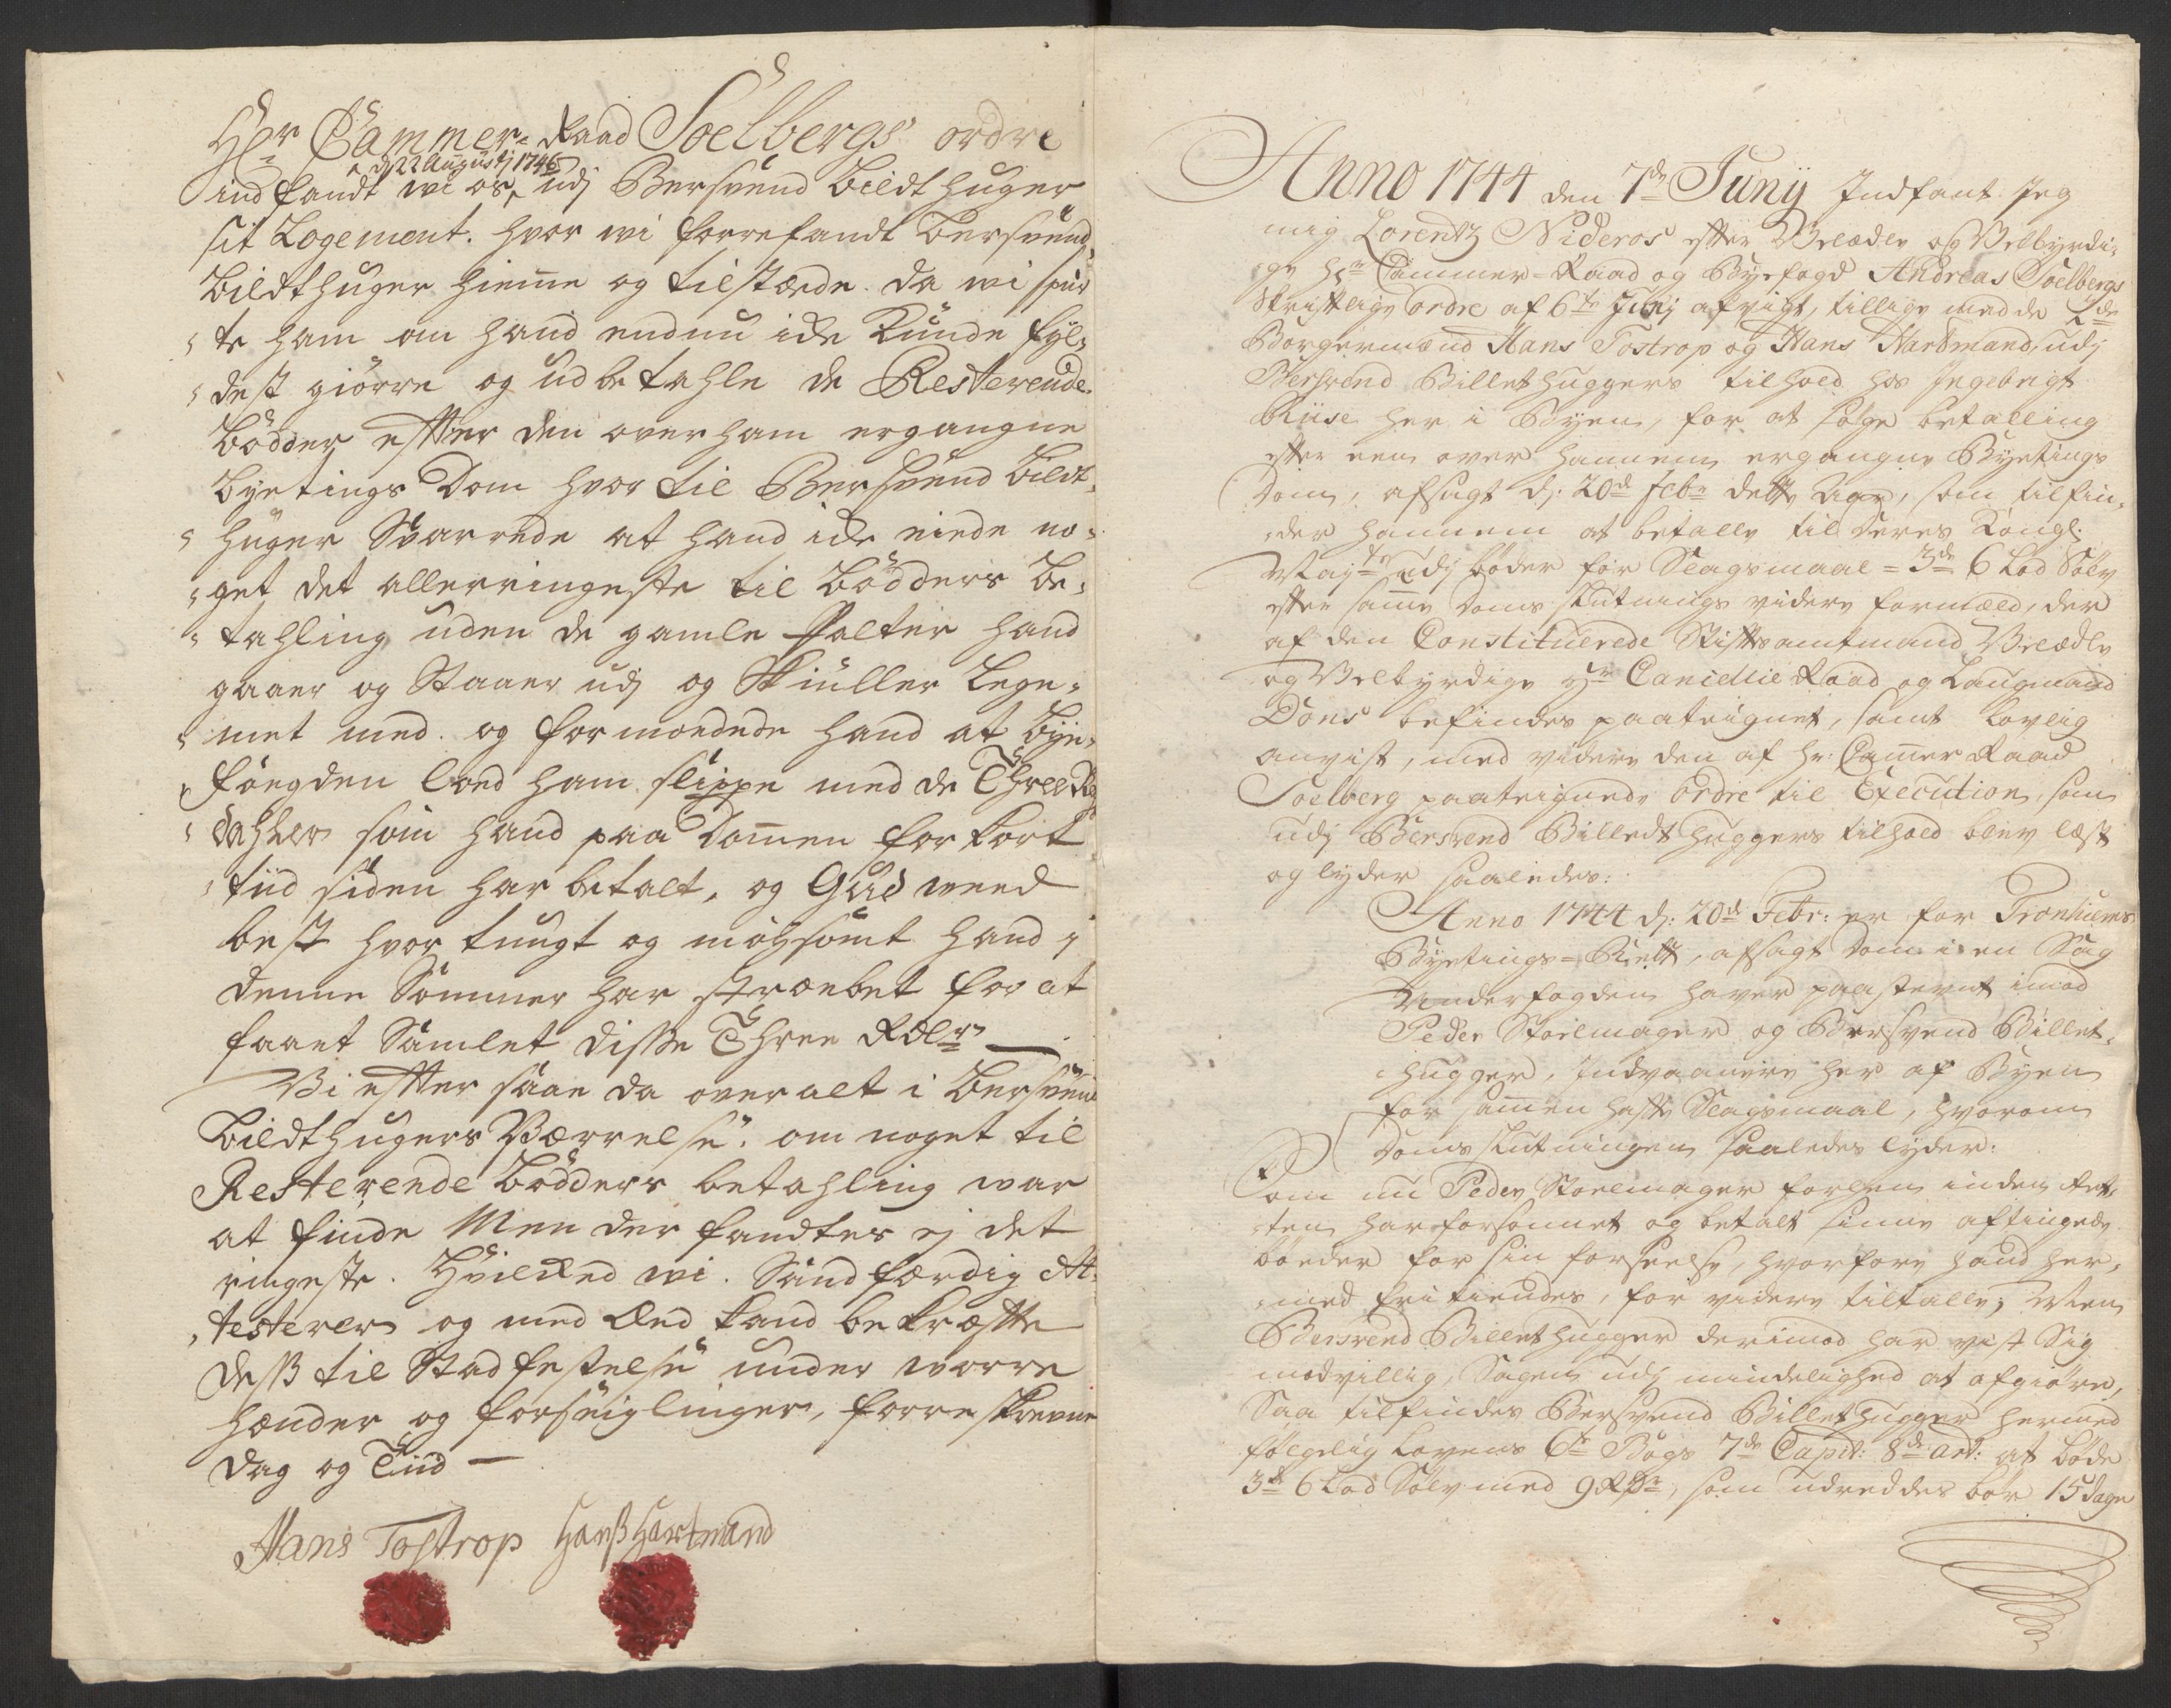 Hr Cammer-Raad Soelbergs ordre
d 22 Augustij 1746
indfandt wi os, udj Bersvend Bildthuger
sit Logement. hvor wi forrefandt Bersvend
Bildthuger hiemme og tilstæde. da wi spur
te ham om hand endnu icke kunde fyl-
dest giørre og udbetahle de Resterende
Bødder effter den over ham ergangne
Byetings Dom hvor til Bersvend Bildt
huger Svarrede at hand icke eiede no-
get det allerringeste til Bødders be-
tahling uden de gamle Palter hand
gaaer og Staaer udj og Skiuller Lege-
met med. og formoedede hand at Bye-
foegden loed ham slippe med de Three Rix
dahler som hand paa Dommen for kort
tiid siden har betalt, og Gud weed
best hvor tungt og møysomt hand j
denne Sommer har stræbet for at
faaet Samlet disse Three Rdlr
Vi effter saae da over alt i Bersvend
Bildthugers Værrelse. om noget til
Resterende Bødders betahling war
at finde Men der fandtes ej det
ringeste. Hvilcked wi. Sandfærdig At-
testerer og med Eed kand bekræffte
dess til Stadfestelse under worre
hænder og forseiglinger, forreskrevne
Dag og Tiid
Hans Tostrop Hanss Hartmand
Anno 1744 den 7de Junij Indfant Jeg
mig Lorentz Nideros effter Velædle og Velbyrdi-
ge Hr Cammer-Raad og Byefogd Andreas Soelbergs
Skrifftlige Ordre af 6te Junij afvigt, tillige med de 2de
Borgermænd Hans Tostrop og Hans Hartmand, udj
Bersvend Billethuggers tilhold hos Ingebrigt
Riise her i Byen, for at søge betalling
effter een over hannem ergangne Byetings
Dom, afsagt d: 20de febr dette Aar, som tilfin-
der hannem at betalle til Deres Kongl:
Mayts udj bøder for Slagsmaal = 3de 6 Lod Sølv
effter samme Doms slutnings videre formæld, der
af den Constituerede Stifftsamtmand Velædle
og Velbyrdige Hr Cancellie Raad og Laugmand
Dons befindes paateignet, samt Lovlig
anvist, med videre den af Hr: Cammer Raad
Soelberg paateignede Ordre til Execution, som
udj Bersvend Billedthuggers tilhold blev læst
og lyder saaledes:
Anno 1744 d: 20de Febr: er for Tronhiems
Byetings-Rætt, afsagt Dom i en Sag
Underfogden haver paastevnt imod
Peder Stoelmager og Bersvend Billet-
hugger, Indvaanere her af Byen
for sammen haffte Slagsmaal, hvorom
Doms slutningen saaledes lyder:
Som nu Peder Stoelmager forhen inden Ret-
ten har forsonnet og betalt sinne aftingede
bøeder for sin forseelse, hvorfore hand her-
med fritiendes, for videre tiltalle; Men
Bersvend Billethugger derimod har vist Sig
modvillig, Sagen udj mindelighed at afgiøre,
Saa tilfindes Bersvend Billethugger hermed
følgelig Lovens 6te Bogs 7de Capit: 8de art: at bøde
3de 6 Lod Sølv med 9 Rdr, som udreddes bør 15 dage